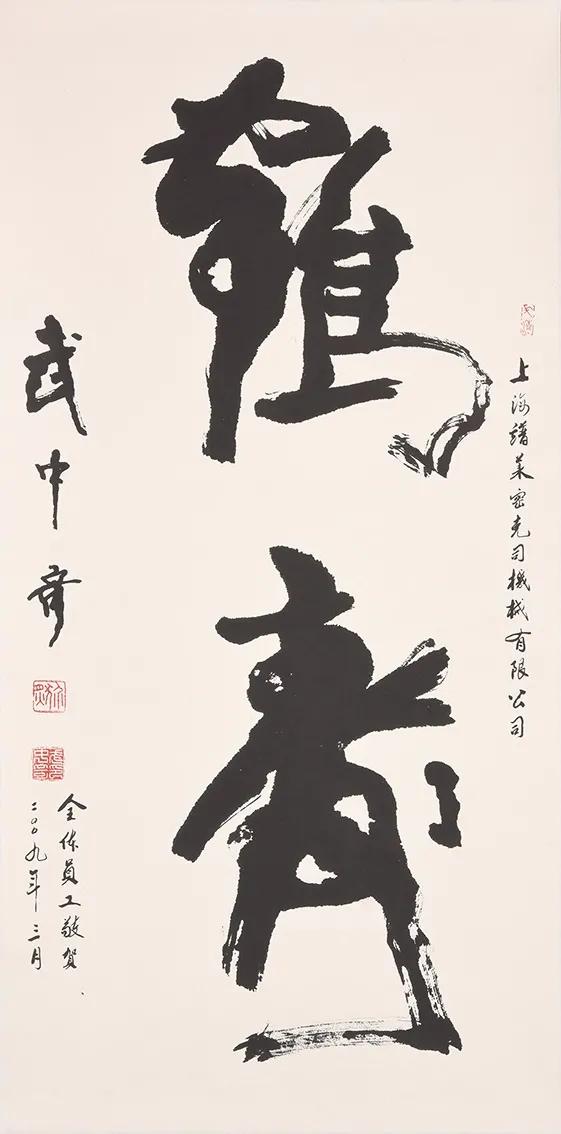 上海譜萊密克司機械有限公司
鶴壽
武中奇
全体員工敬賀
二〇〇九年三月